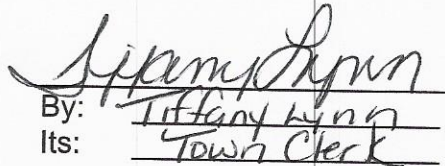 Tiffany Lynn
By: Tiffany Lynn
Its: Town Clerk